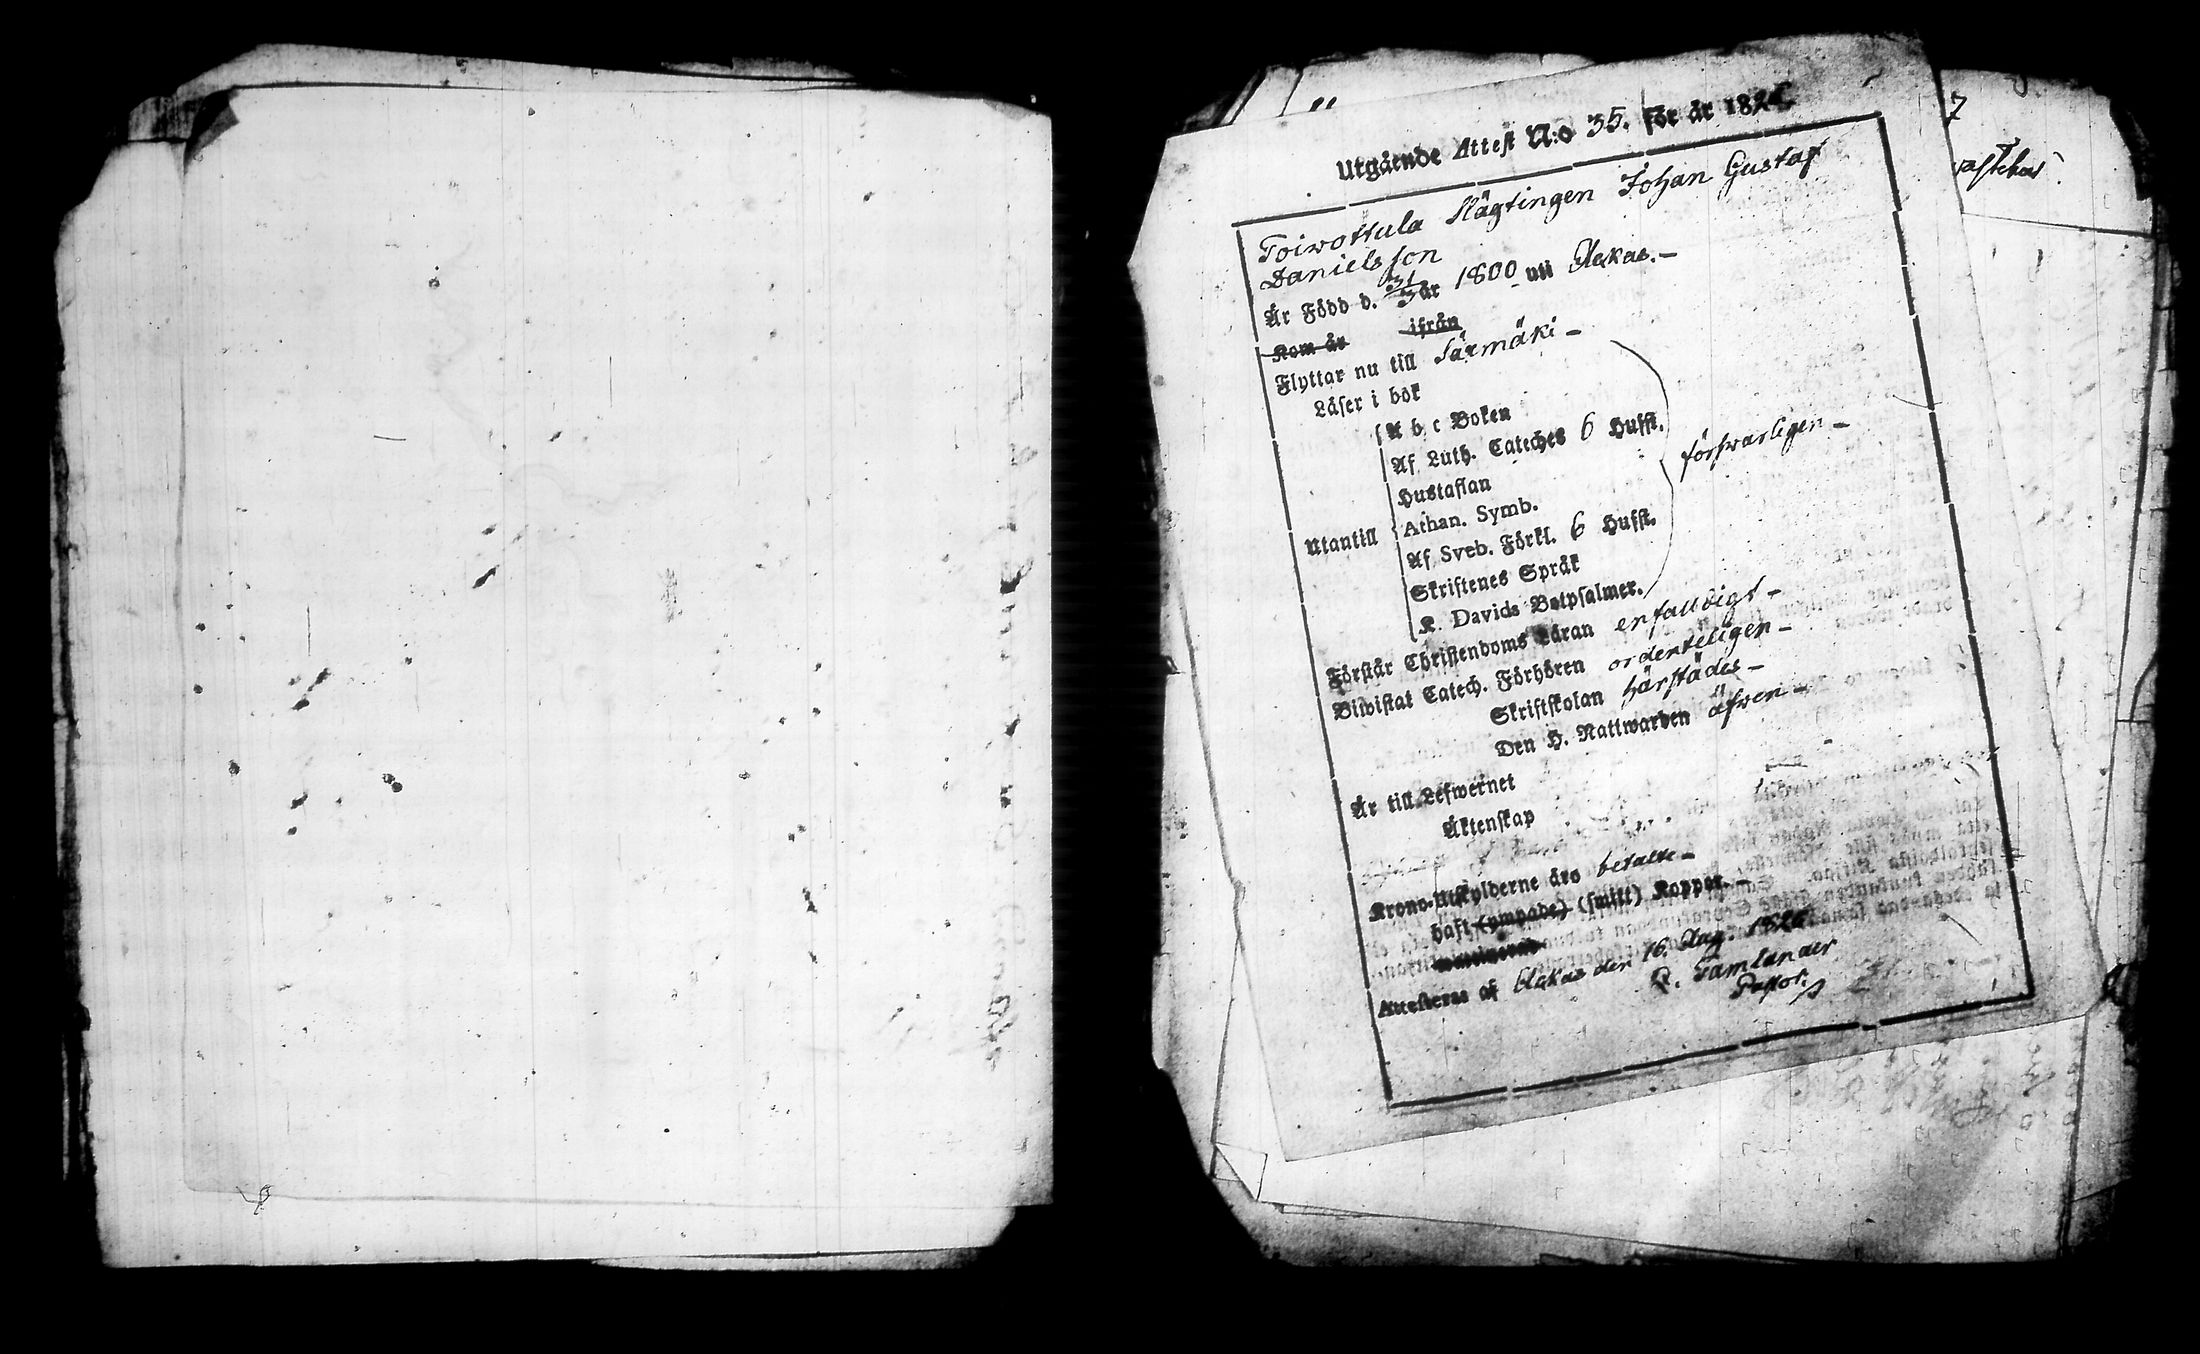 Utgående Attest N:o 35. för år 1826
Toiwottula Hägtingen Johan Gustaf
Danielsson
Är Född d. 31/3 år 1800 uti Uskas. –
Kom år ifrån
Flyttar nu till Särmäki –
Läser i bok
A b c Boken
Af Luth. Cateches 6 Hufst.
förswarligen –
Hustaflan
Utantill
Athan. Symb.
Af Sveb. Förkl. 6 Hufst.
Skriftenes Språk
K. Davids Botpsalmer.
Förstår Christendoms Läran enfalldigt –
Biwistat Catech. Förhören ordenteligen –
Skriftskolan härstädes –
Den H. Nattwarden äfwen –
Är till Lefwernet
Äktenskap
Krono-Utskylderne äro betalte –
haft (ympade) (smitt) Koppor. –
Attesteras af Uskas den 16. Aug. 1826
Tamlander
Pastor.